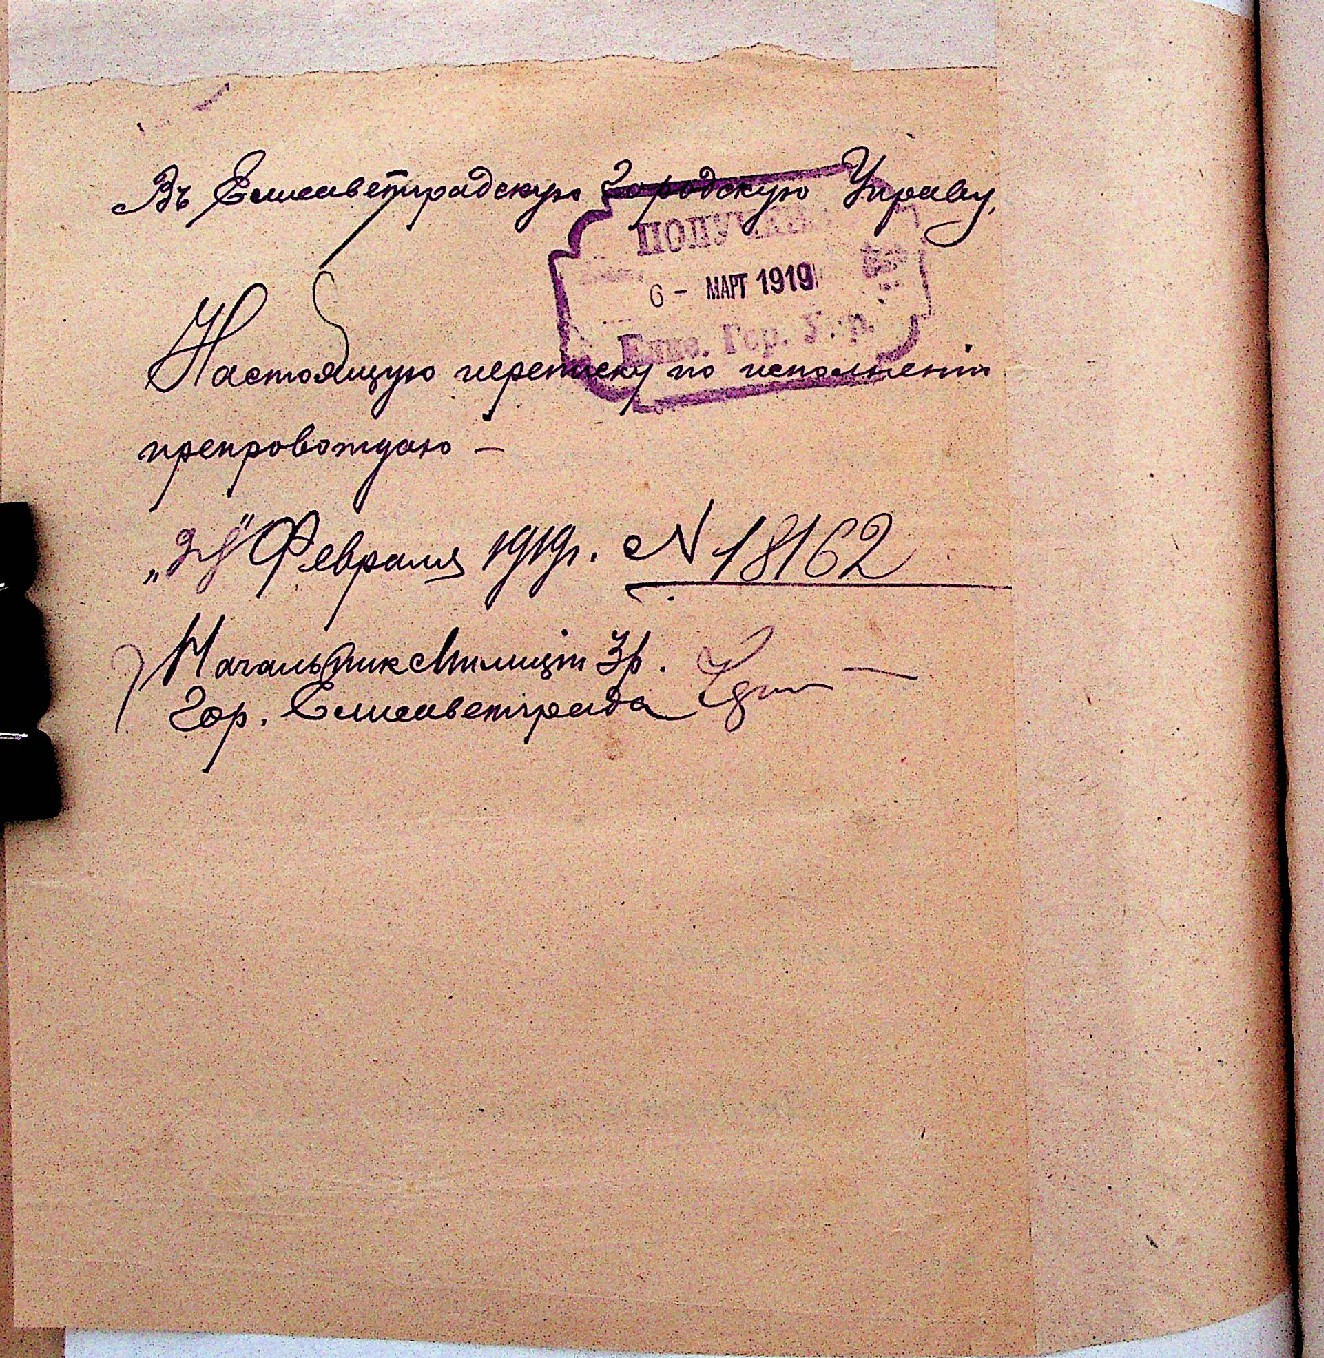 Въ Елисаветградскую Городскую Управу,
ПОЛУЧЕНО
6 - МАРТ 1919
Елис. Гор. Упр.
Настоящую переписку по исполненіи
препровождаю —
Февраля 1919г. № 18162
Начальник Милиціи
Гор. Елисаветграда